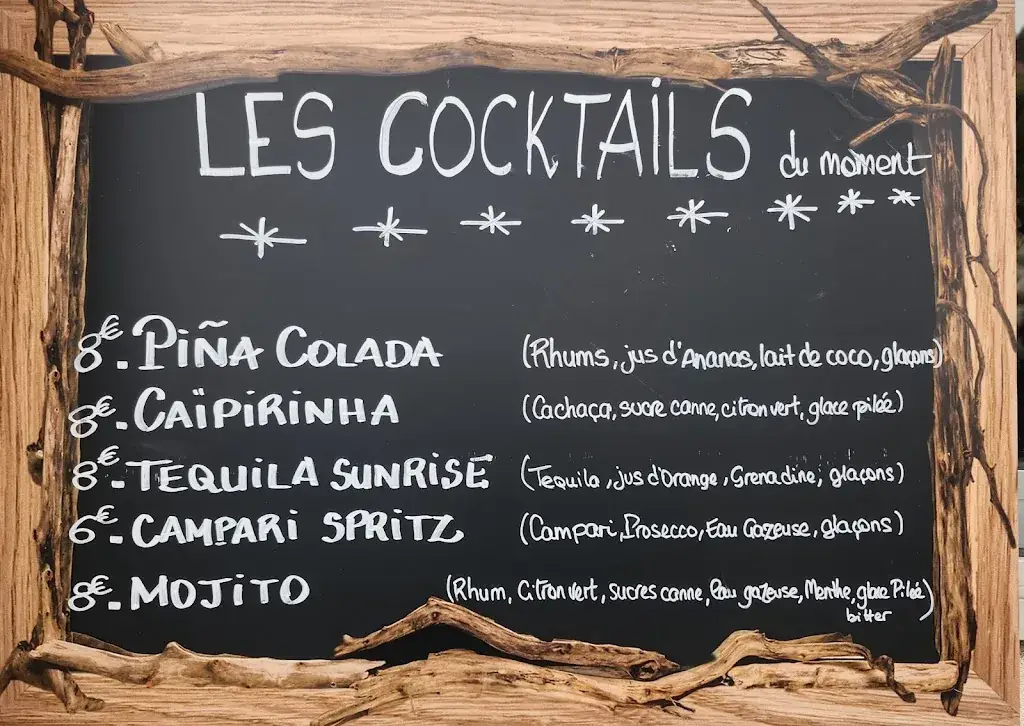 LES COCKTAILS du moment
8€. PIÑA COLADA (Rhums, jus d'Ananas, lait de coco, glaçons)
8€. CAÏPIRINHA (Cachaça, sucre canne, citron vert, glace pilée)
8€. TEQUILA SUNRISE (Tequila, jus d'Orange, Grenadine, glaçons)
6€. CAMPARI SPRITZ (Campari, Prosecco, Eau Gazeuse, glaçons)
8€. MOJITO (Rhum, Citron vert, sucres canne, Eau gazeuse, Menthe, glace Pilée)
bitter